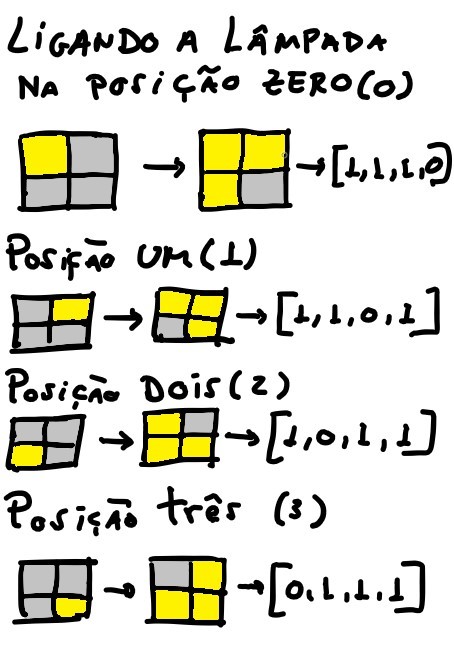 LIGANDO A LÂMPADA
NA POSIÇÃO ZERO(0)
→ → [1,1,1,0]
POSIÇÃO UM(1)
→ → [1,1,0,1]
POSIÇÃO DOIS(2)
→ → [1,0,1,1]
POSIÇÃO três (3)
→ → [0,1,1,1]